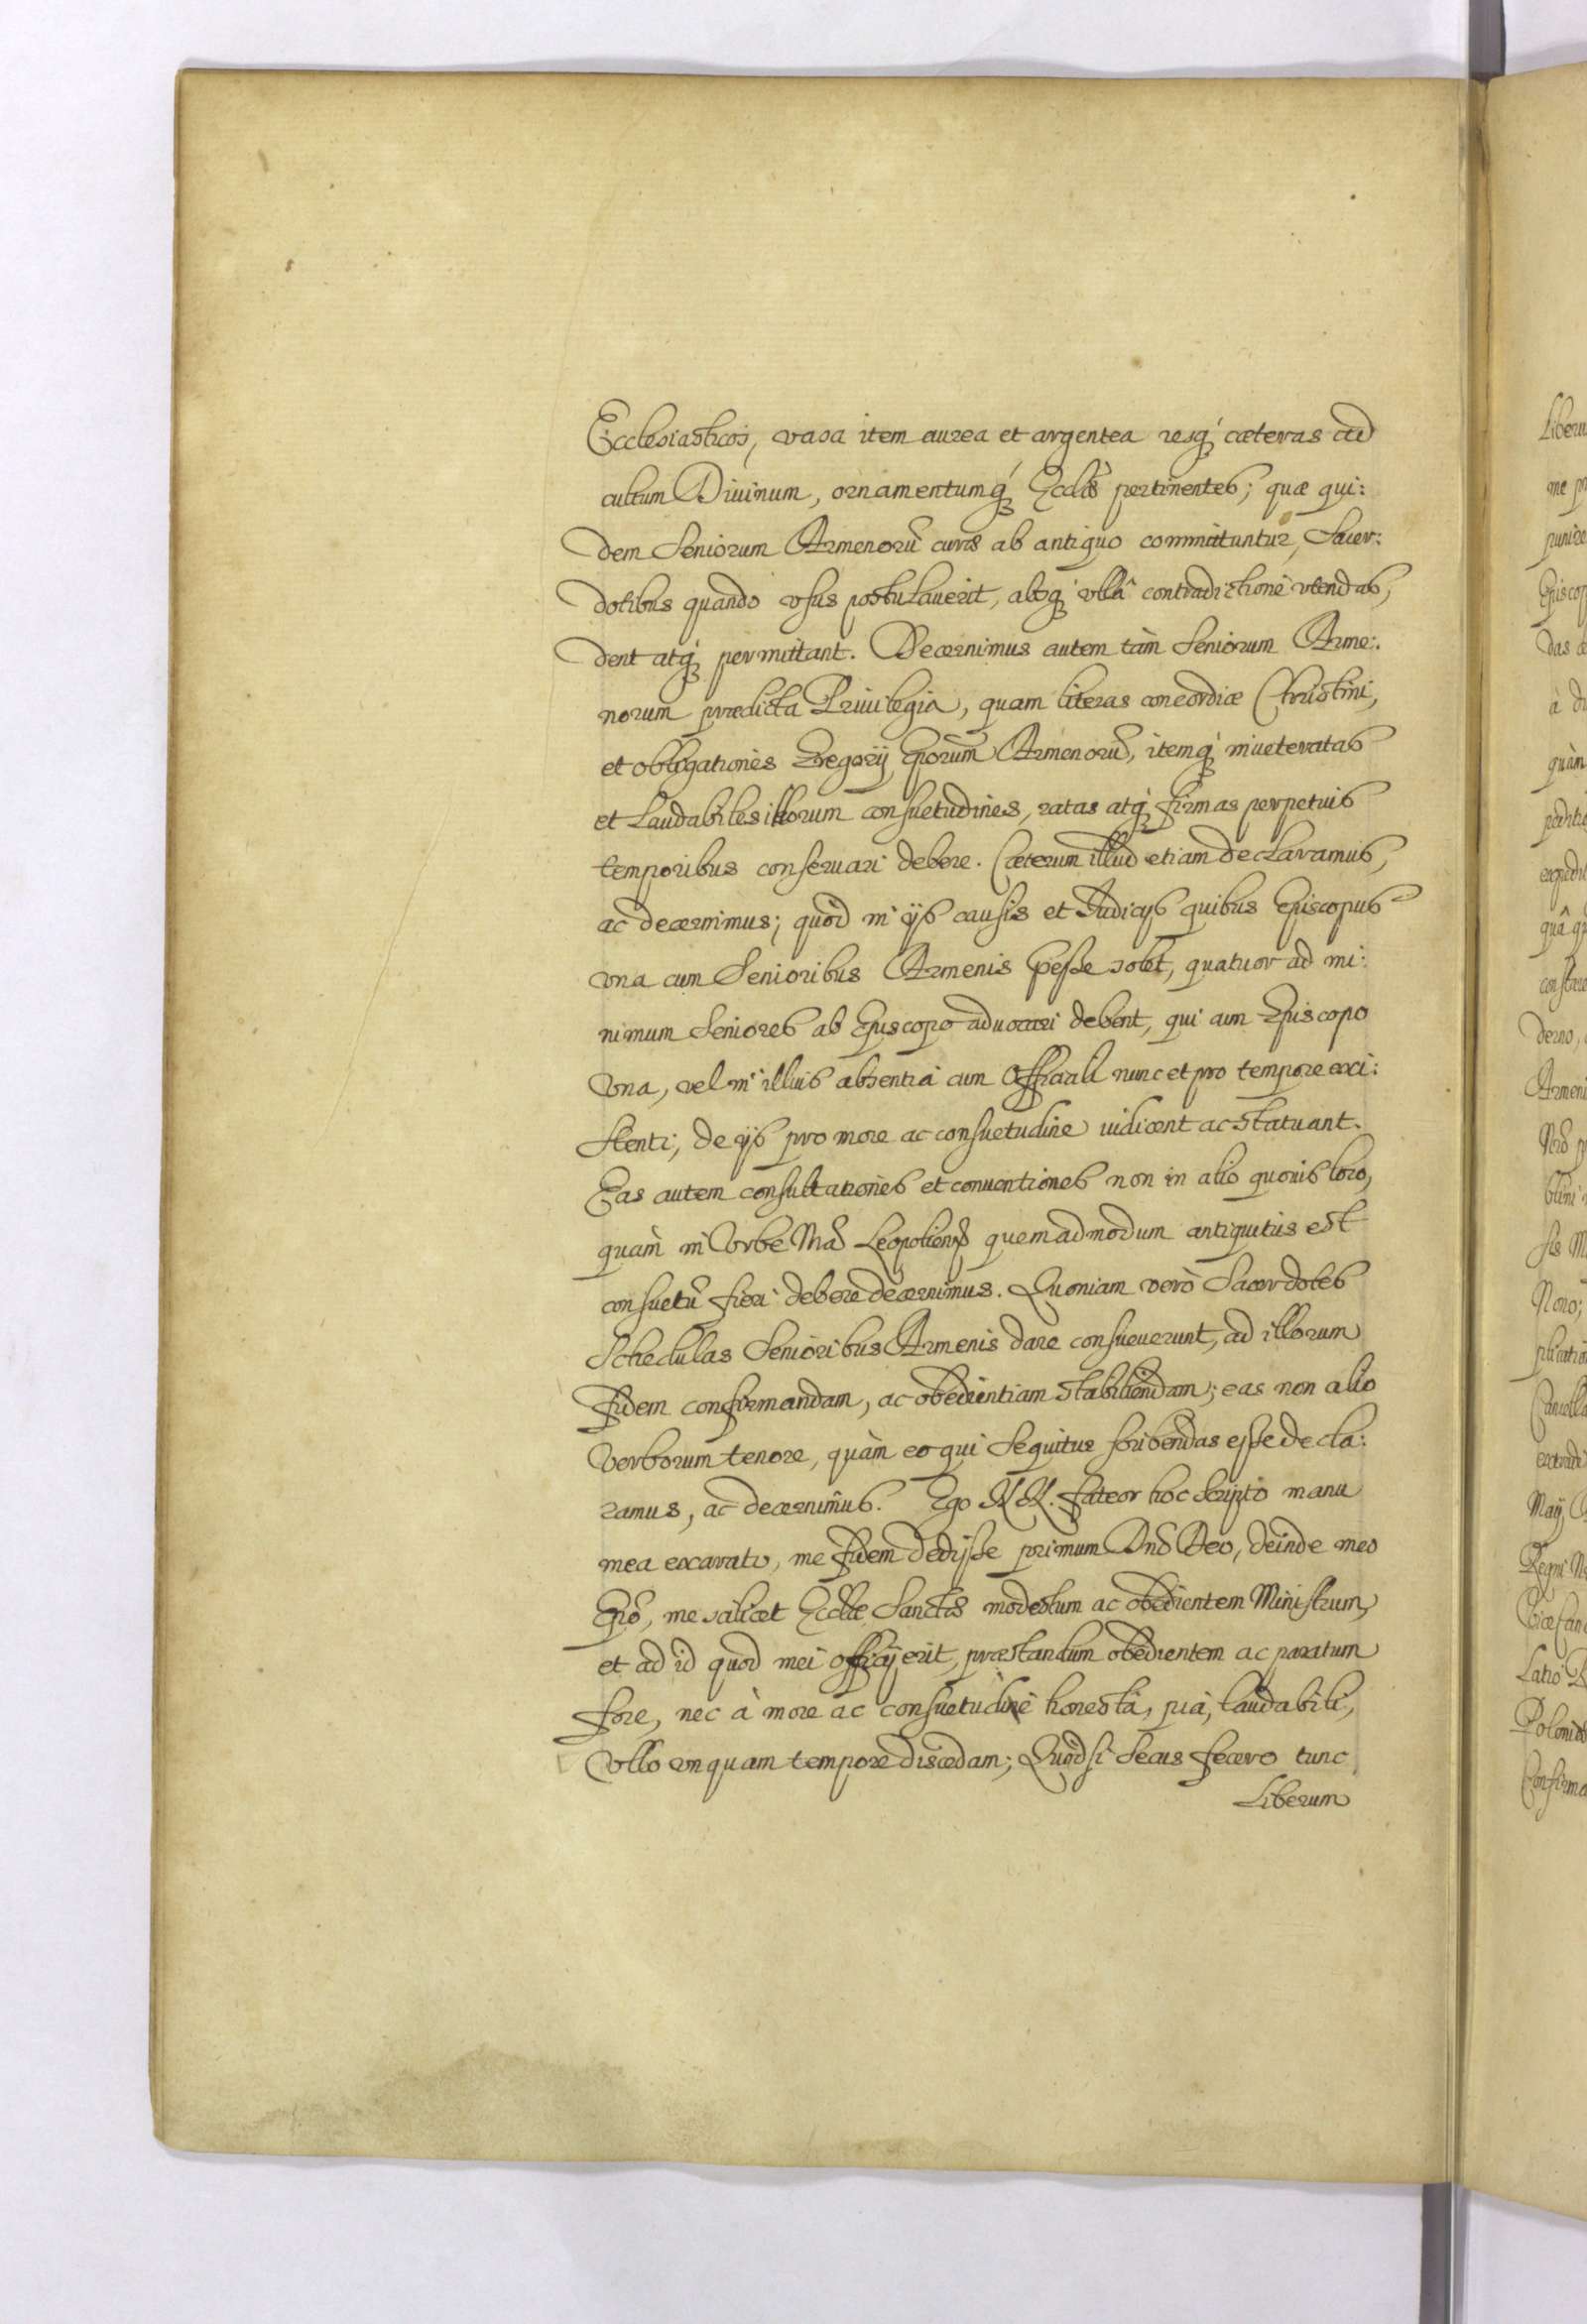 Ecclesiasticos, vasa item aurea et argentea resq́ cæteras ad
cultum Diuinum, ornamentumq́ Eccliæ pertinentes; quæ qui:
dem Seniorum Armenorũ curæ ab antiquo committuntur, Sacer:
dotibus quando vsus postulauerit, absq́ vllâ contradictione vtendas,
dent atq́ permittant. Decernimus autem tàm Seniorum Arme:
norum prædicta Priuilegia, quam literas concordiæ Christini,
et obligationes Gregorij Eporum Armenorũ, itemq́ inueteratas
et Laudabiles illorum consuetudines, ratas atq́ firmas perpetuis
temporibus conseruari debere. Cæterum illud etiam declaramus,
ac decernimus; quòd in ijs causis et Iudicijs quibus Episcopus
vna cum Senioribus Armenis præesse solet, quatuor ad mi:
nimum Seniores ab Episcopo aduocari debent, qui cum Episcopo
vna, vel in illius absentia cum Officiali nunc et pro tempore exi:
stenti, de ijs pro more ac consuetudine iudicent ac statuant.
Eas autem consultationes et conuentiones non in alio quouis loco,
quàm in Vrbe Leopolien quemadmodum antiquitùs est
consuetũ fieri debere decernimus. Quoniam verò Sacerdotes
Schedulas Senioribus Armenis dare consueuerunt, ad illorum
fidem confirmandam, ac obedientiam stabiliendam; eas non alio
verborum tenore, quàm eo qui sequitur scribendas esse decla:
ramus, ac decernimus. Ego N.N. fateor hoc scripto manu
mea exarato, me fidem dedisse primum Dño Deo, deinde meo
Epõ, me scilicet Eccliæ Sanctæ modestum ac obedientem Ministrum,
et ad id quod mei officij erit, præstandum obedientem ac paratum
fore, nec à more ac consuetudine honestâ, piâ, laudabili,
vllo vnquam tempore discedam; Quòd si secus fecero tunc
Liberum